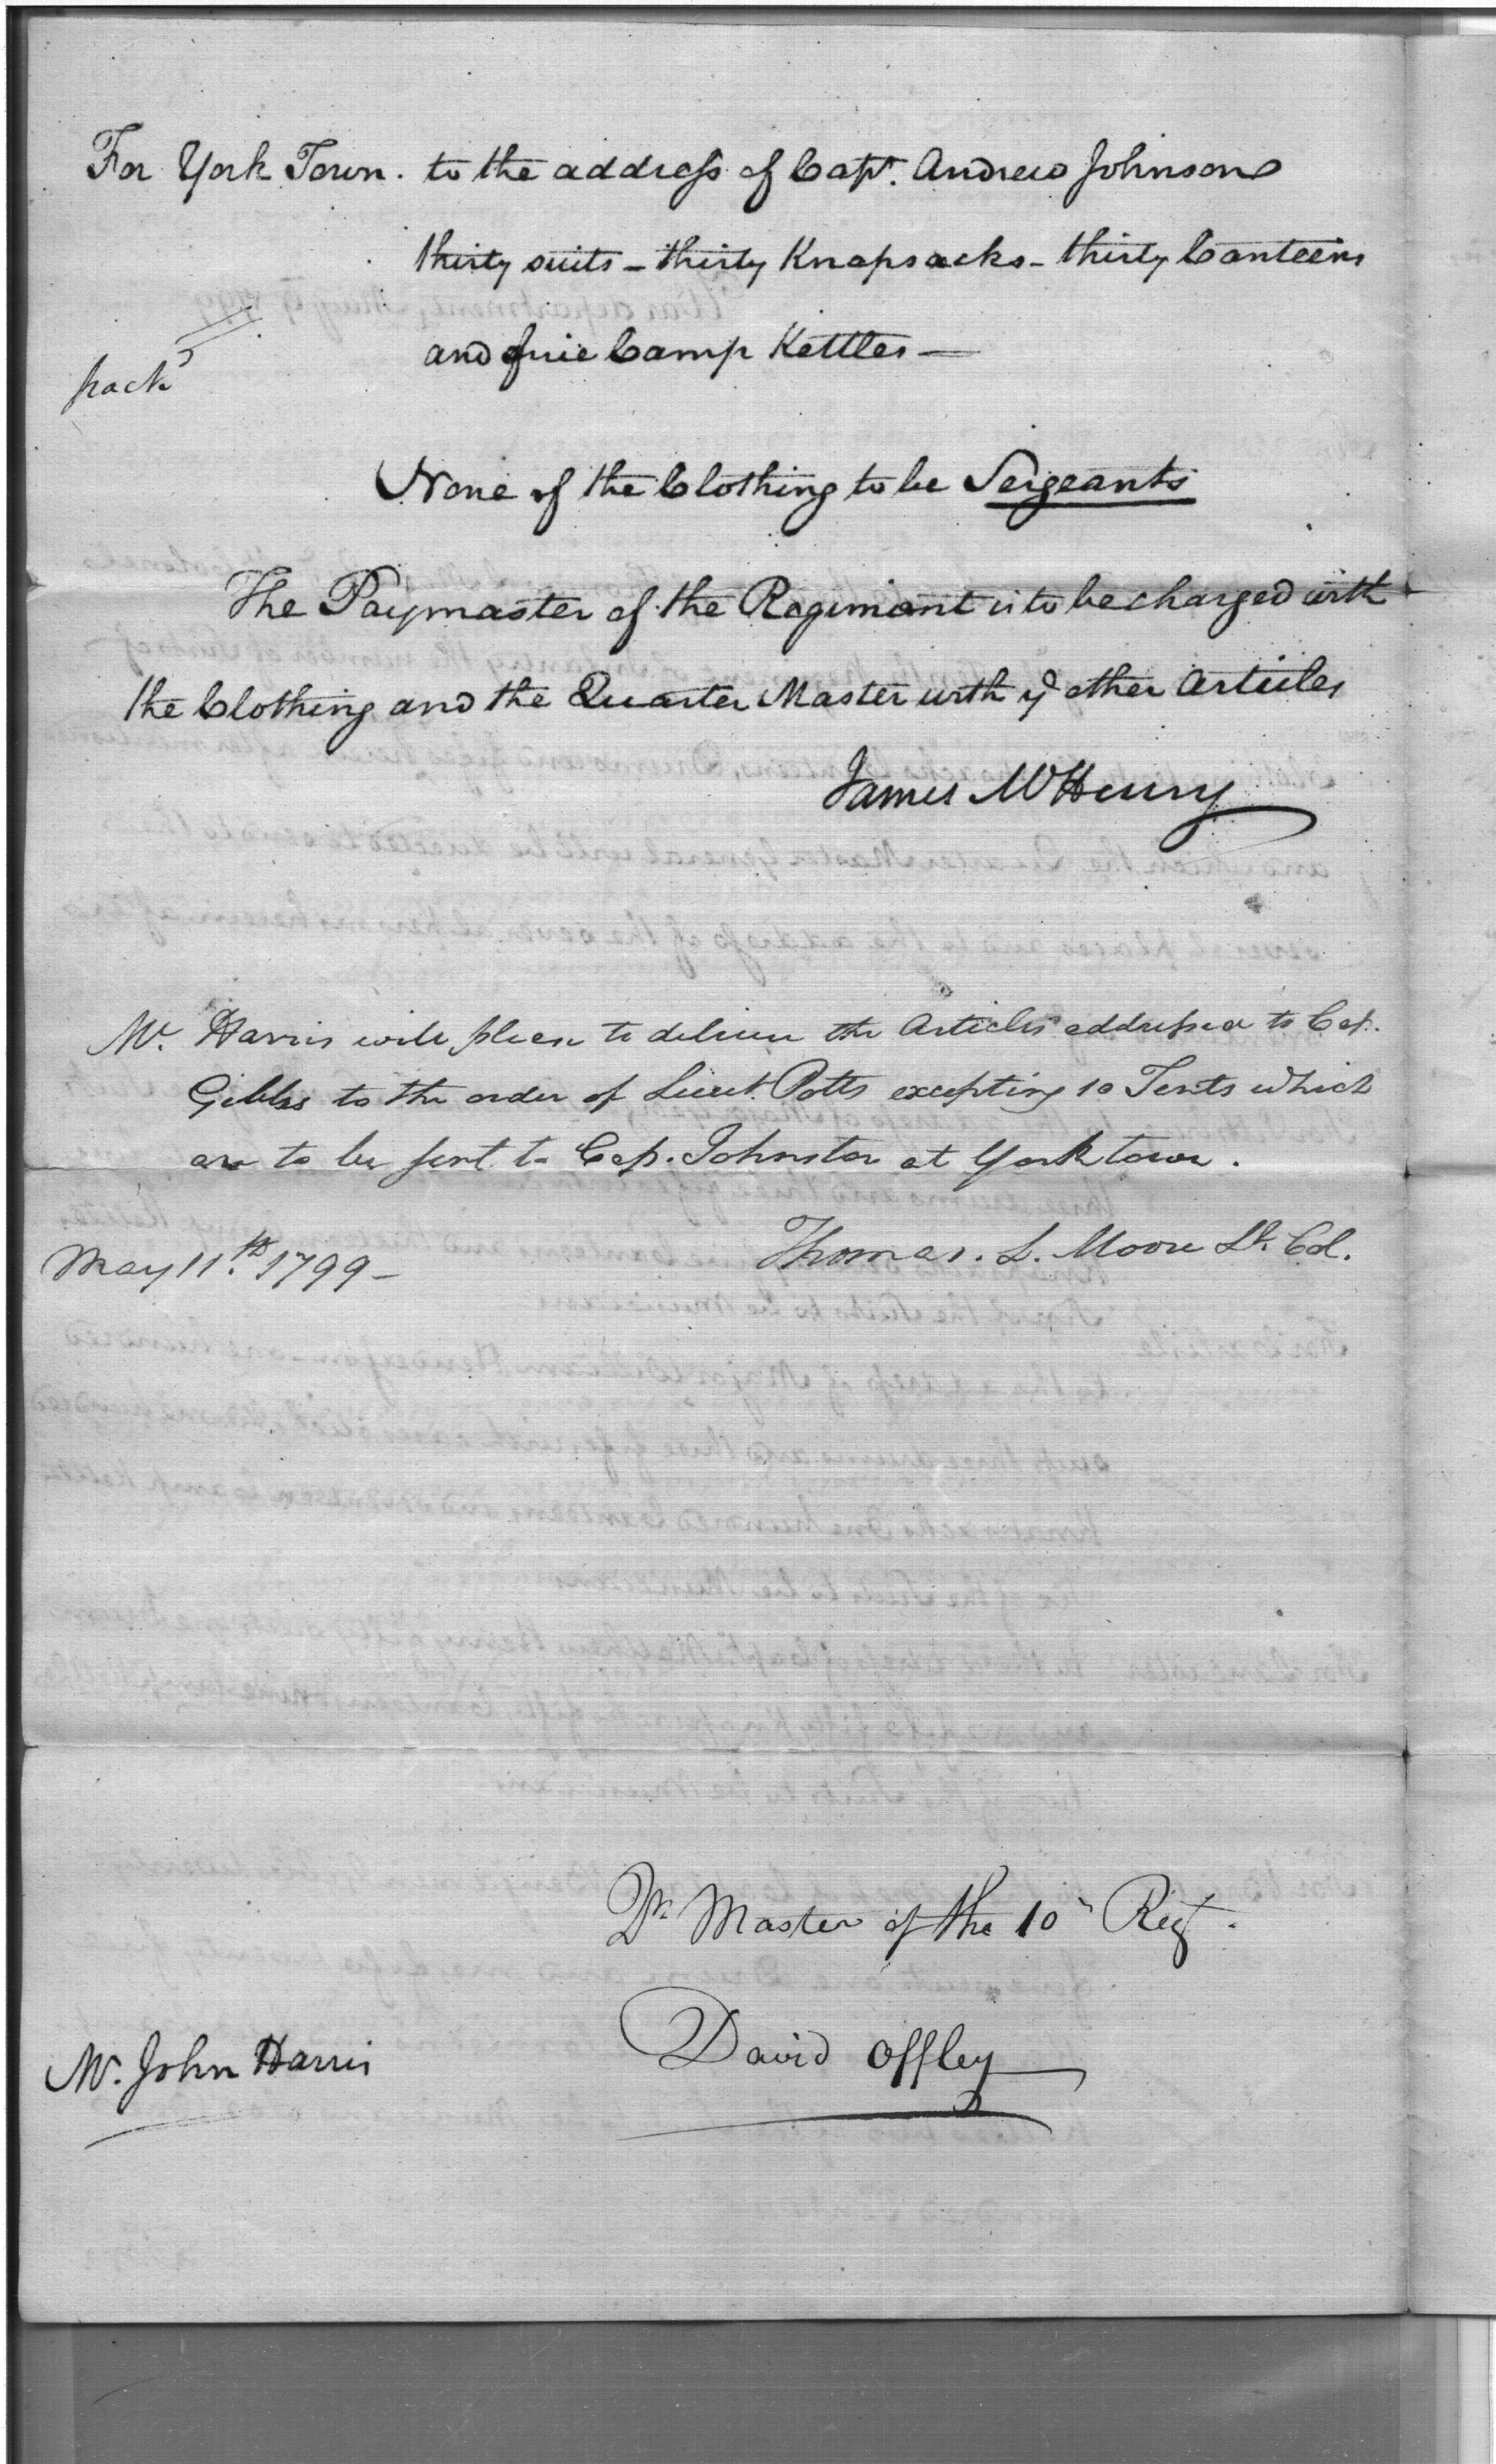 For York Town. to the address of Capt. Andrew Johnson
thirty suits – thirty Knapsacks – thirty Canteens
and five Camp Kettles —
packd
None of the Clothing to be Sergeants
The Paymaster of the Regiment is to be charged with
the Clothing and the Quarter Master with ye other Articles
James McHenry
Mr. Harris will please to deliver the Articles addressed to Cap.
Gibbs to the order of Lieut. Potts excepting 10 Tents which
are to be sent to Cap. Johnston at York town.
May 11.th 1799 –
Thomas. L. Moore Lt. Col.
Qr. Master of the 10th Regt.
David Offley
Mr. John Harris